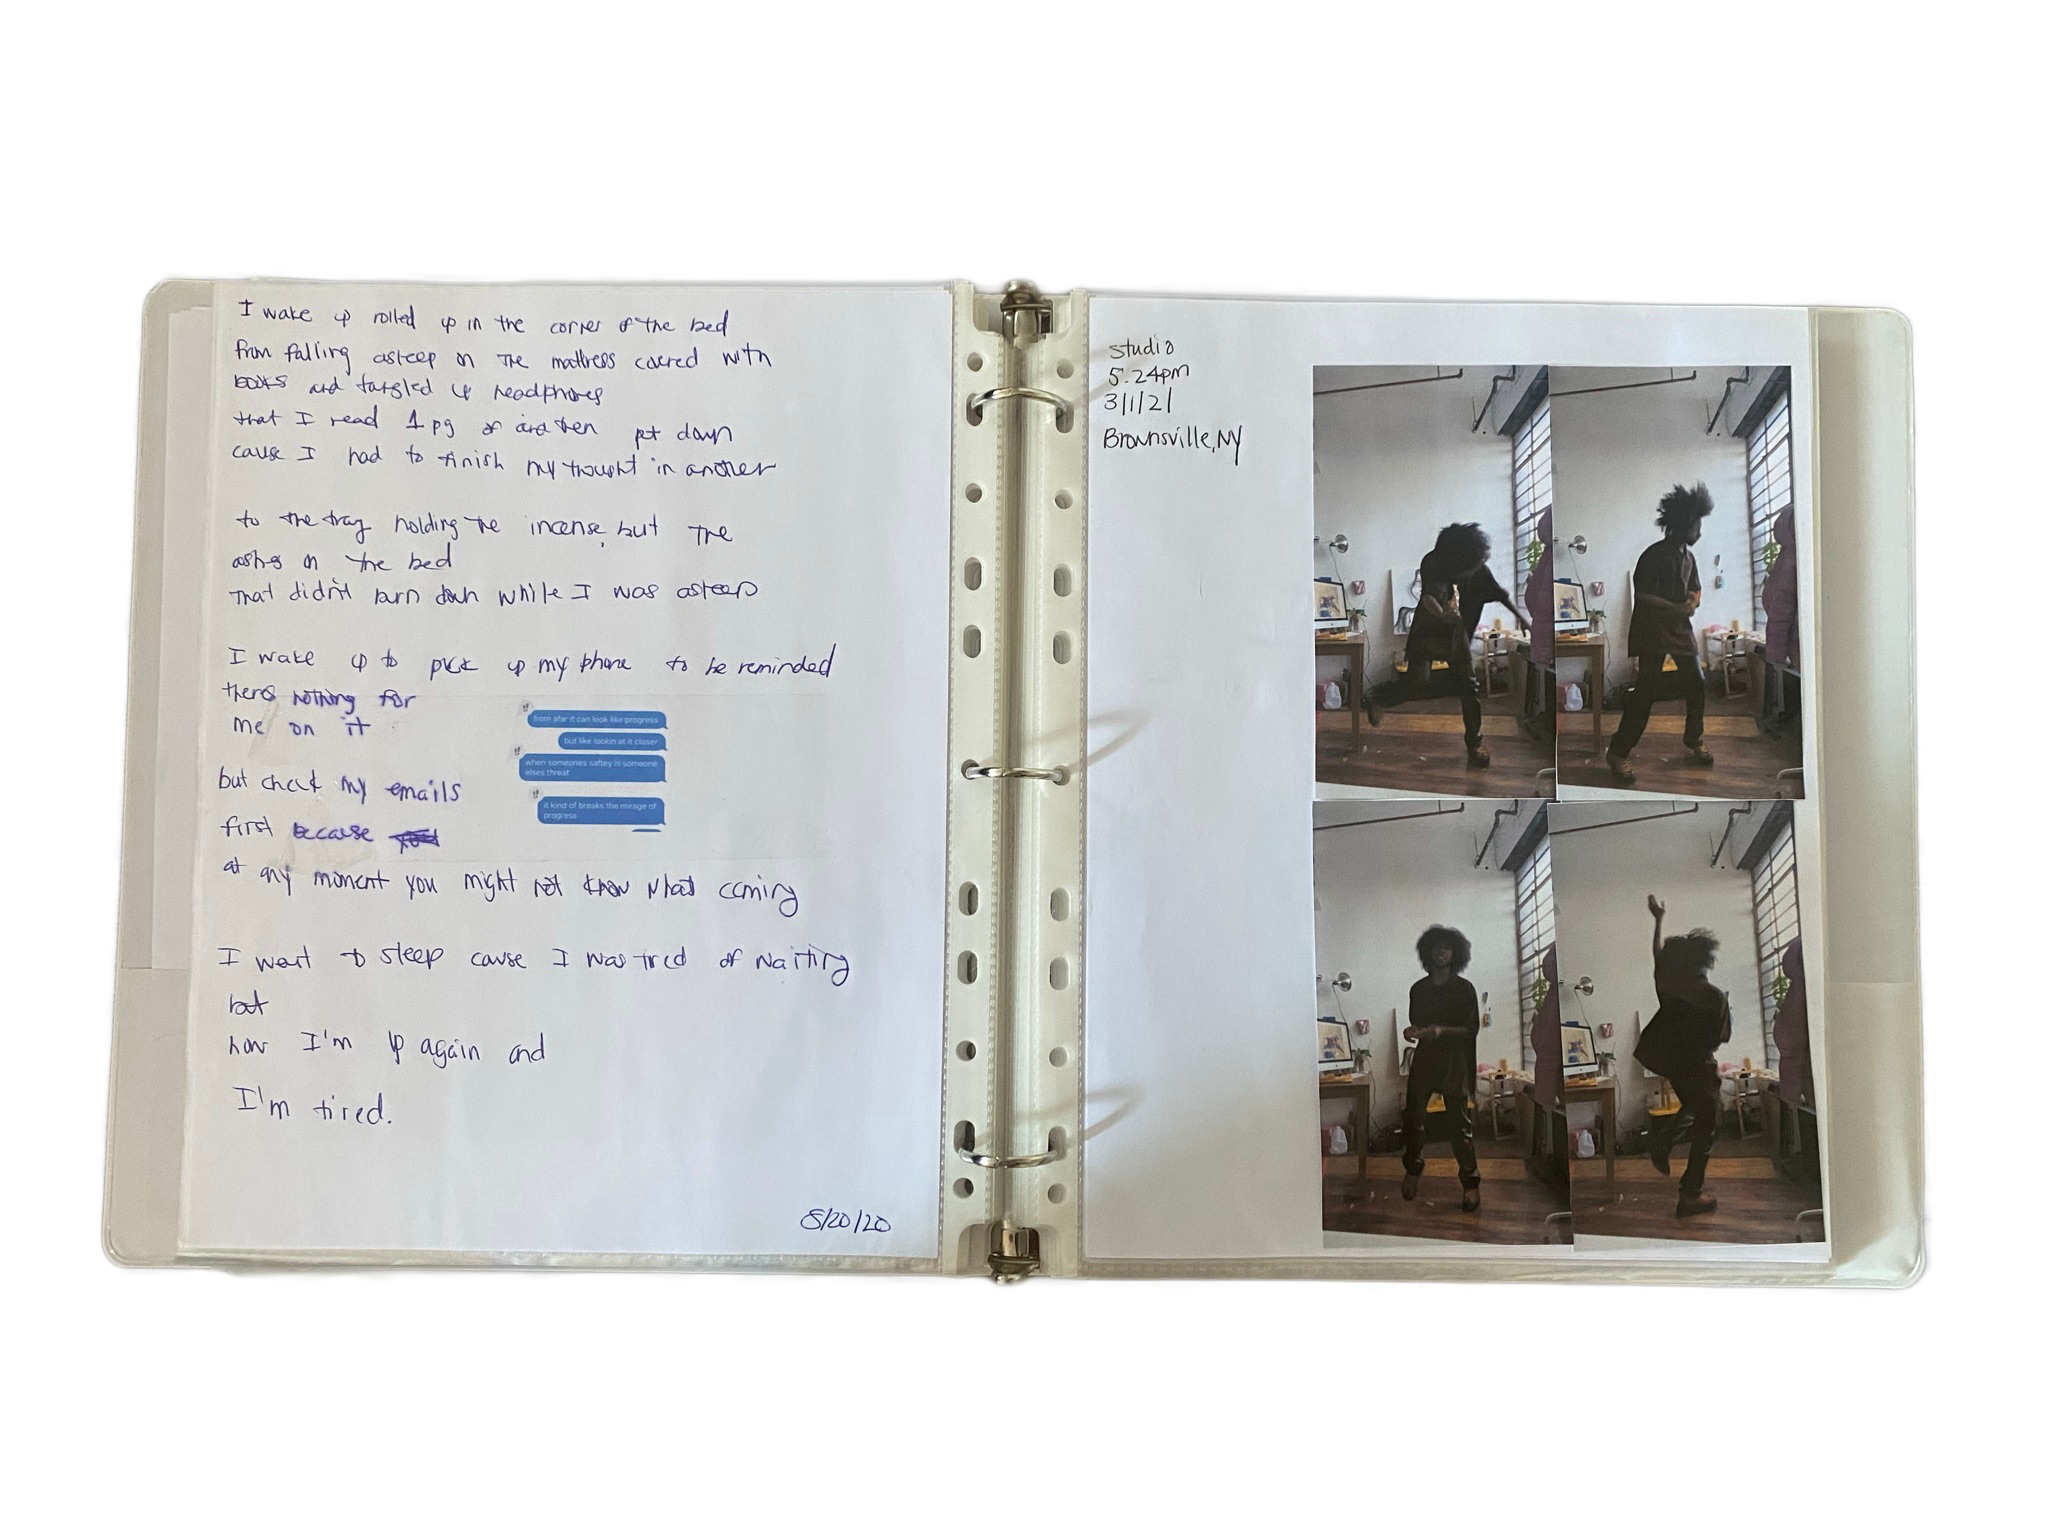 I wake up rolled up in the corner of the bed
from falling asleep on the mattress covered with
books and tangled up headphones
that I read 1 pg of and then put down
cause I had to finish my thought in another
to the tray holding the incense, but the
ashes on the bed
that didn't burn down while I was asleep
I wake up to pick up my phone to be reminded
theres nothing for
me on it
from afar it can look like progress
but like lookin at it closer
when someones saftey is someone
elses threat
it kind of breaks the mirage of
progress
but check my emails
first because
at any moment you might not know what coming
I went to sleep cause I was tired of waiting
but
now I'm up again and
I'm tired.
8/20/20
Studio
5.24pm
3/1/21
Brownsville, NY